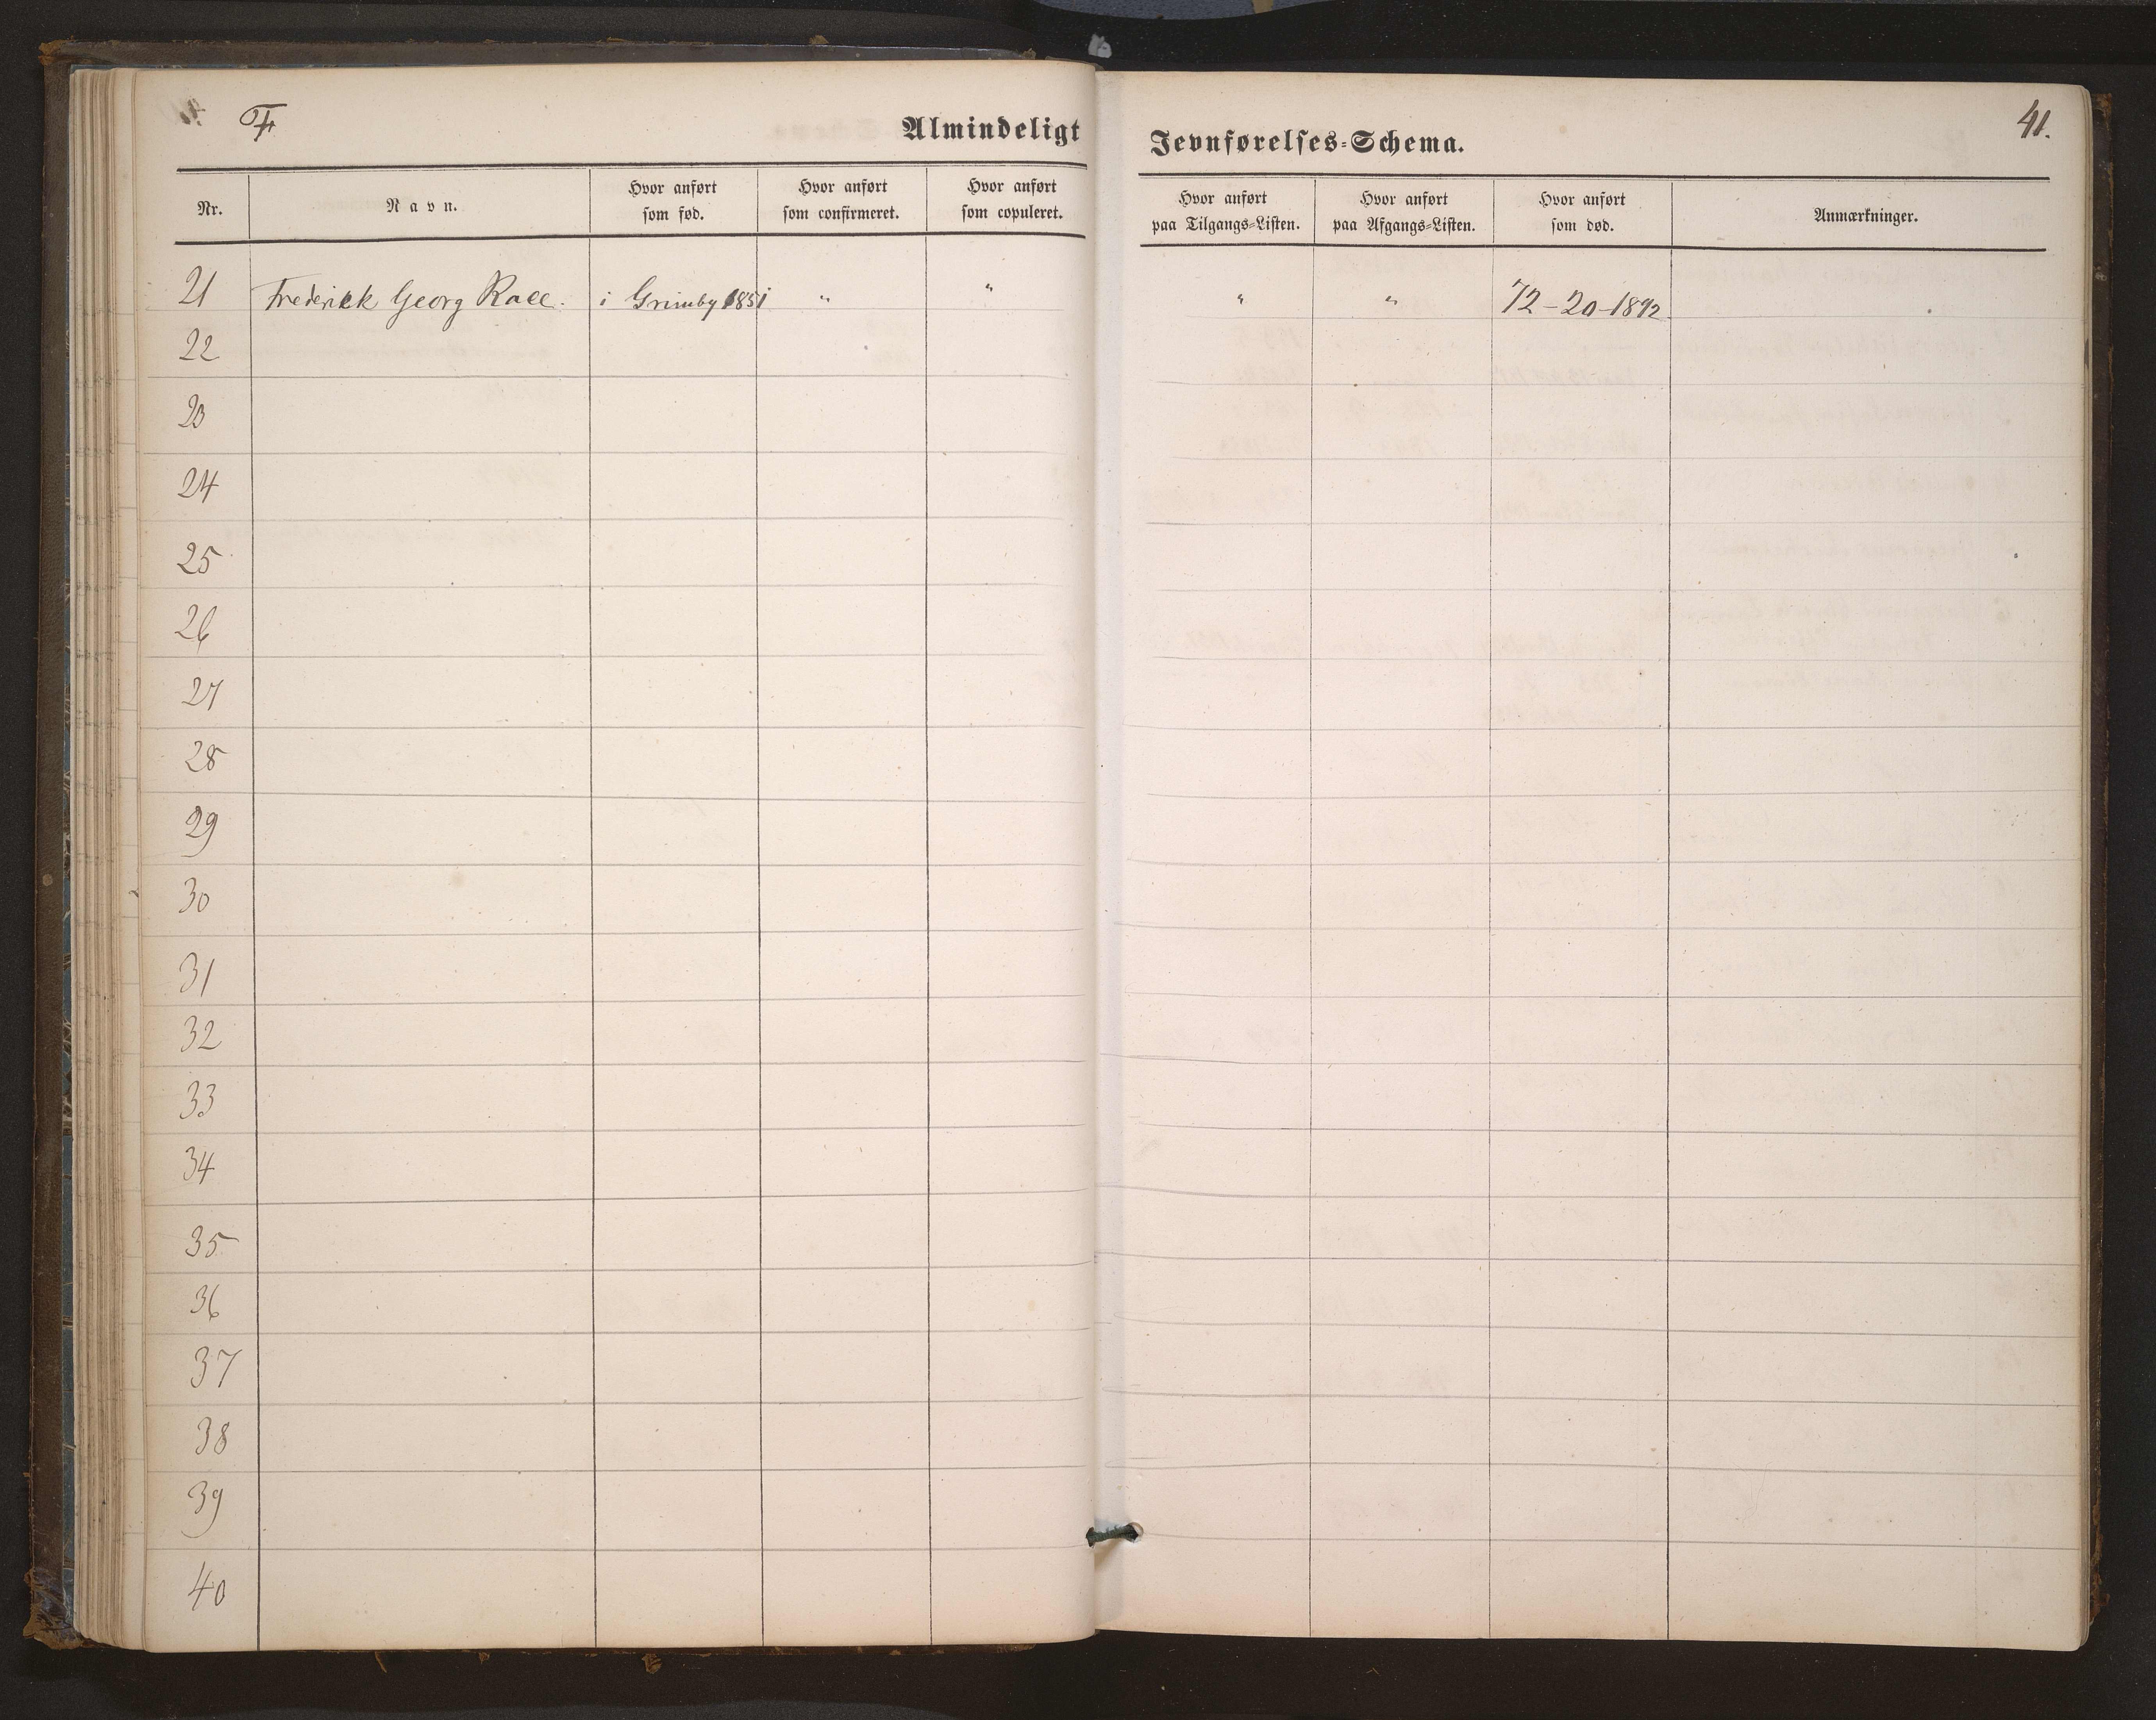 F
Almindeligt Jevnførelses-Schema.
41.
Nr. Navn. Hvor anført som fød. Hvor anført som confirmeret. Hvor anført som copuleret. Hvor anført paa Tilgangs-Listen. Hvor anført paa Afgangs-Listen. Hvor anført som død. Anmærkninger.
21 Frederikk Georg i Grimby 1851 " " " " 72-20-1892
22
23
24
25
26
27
28
29
30
31
32
33
34
35
36
37
38
39
40